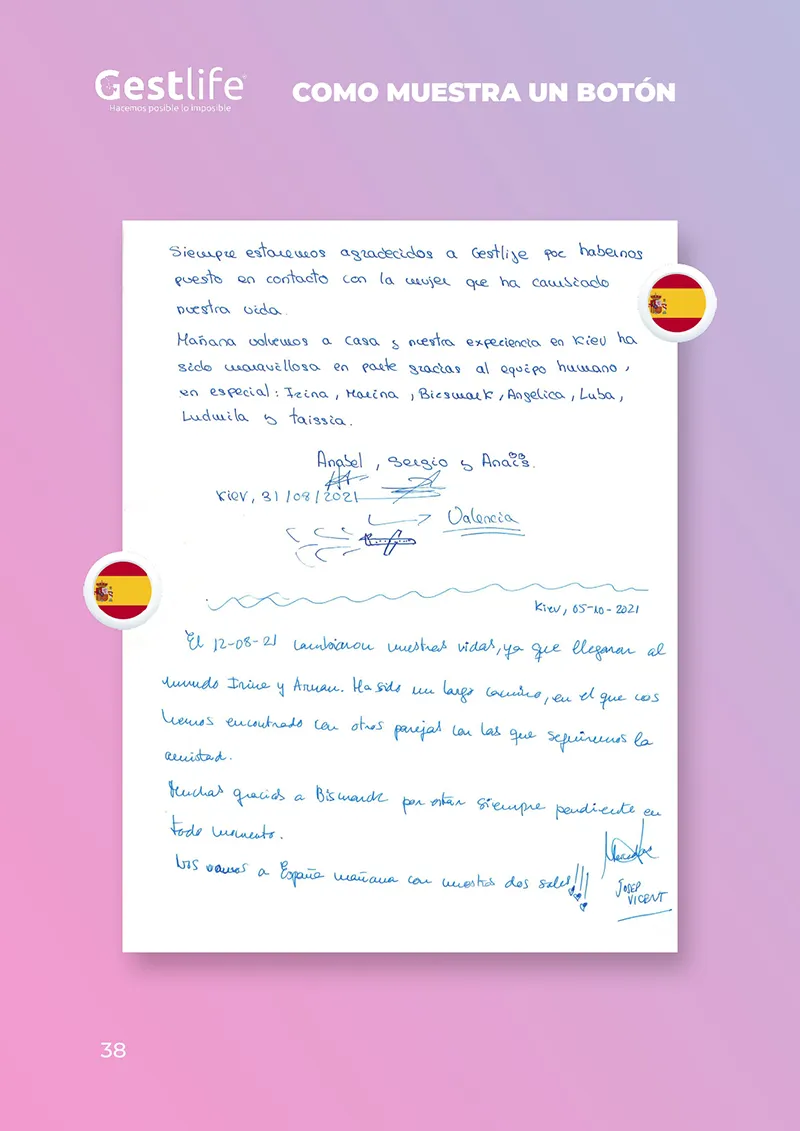 Gestlife
Hacemos posible lo imposible
COMO MUESTRA UN BOTÓN
Siempre estaremos agradecidos a Gestlife por habernos
puesto en contacto con la mujer que ha cambiado
nuestra vida.
Mañana volvemos a casa y nuestra experiencia en Kiev ha
sido maravillosa en parte gracias al equipo humano,
en especial: Irina, Marina, Biesmark, Angelica, Luba,
Ludmila y Taissia.
Anabel, Sergio y Anaïs.
Kiev, 31/08/2021
Valencia
Kiev, 05-10-2021
El 12-08-21 cambiaron nuestras vidas, ya que llegaron al
mundo Irine y Arnau. Ha sido un largo camino, en el que nos
hemos encontrado con otras parejas con las que seguiremos la
amistad.
Muchas gracias a Bismarck por estar siempre pendiente en
todo momento.
Nos vamos a España mañana con nuestros dos soles!!!
JOSEP
VICENT
38